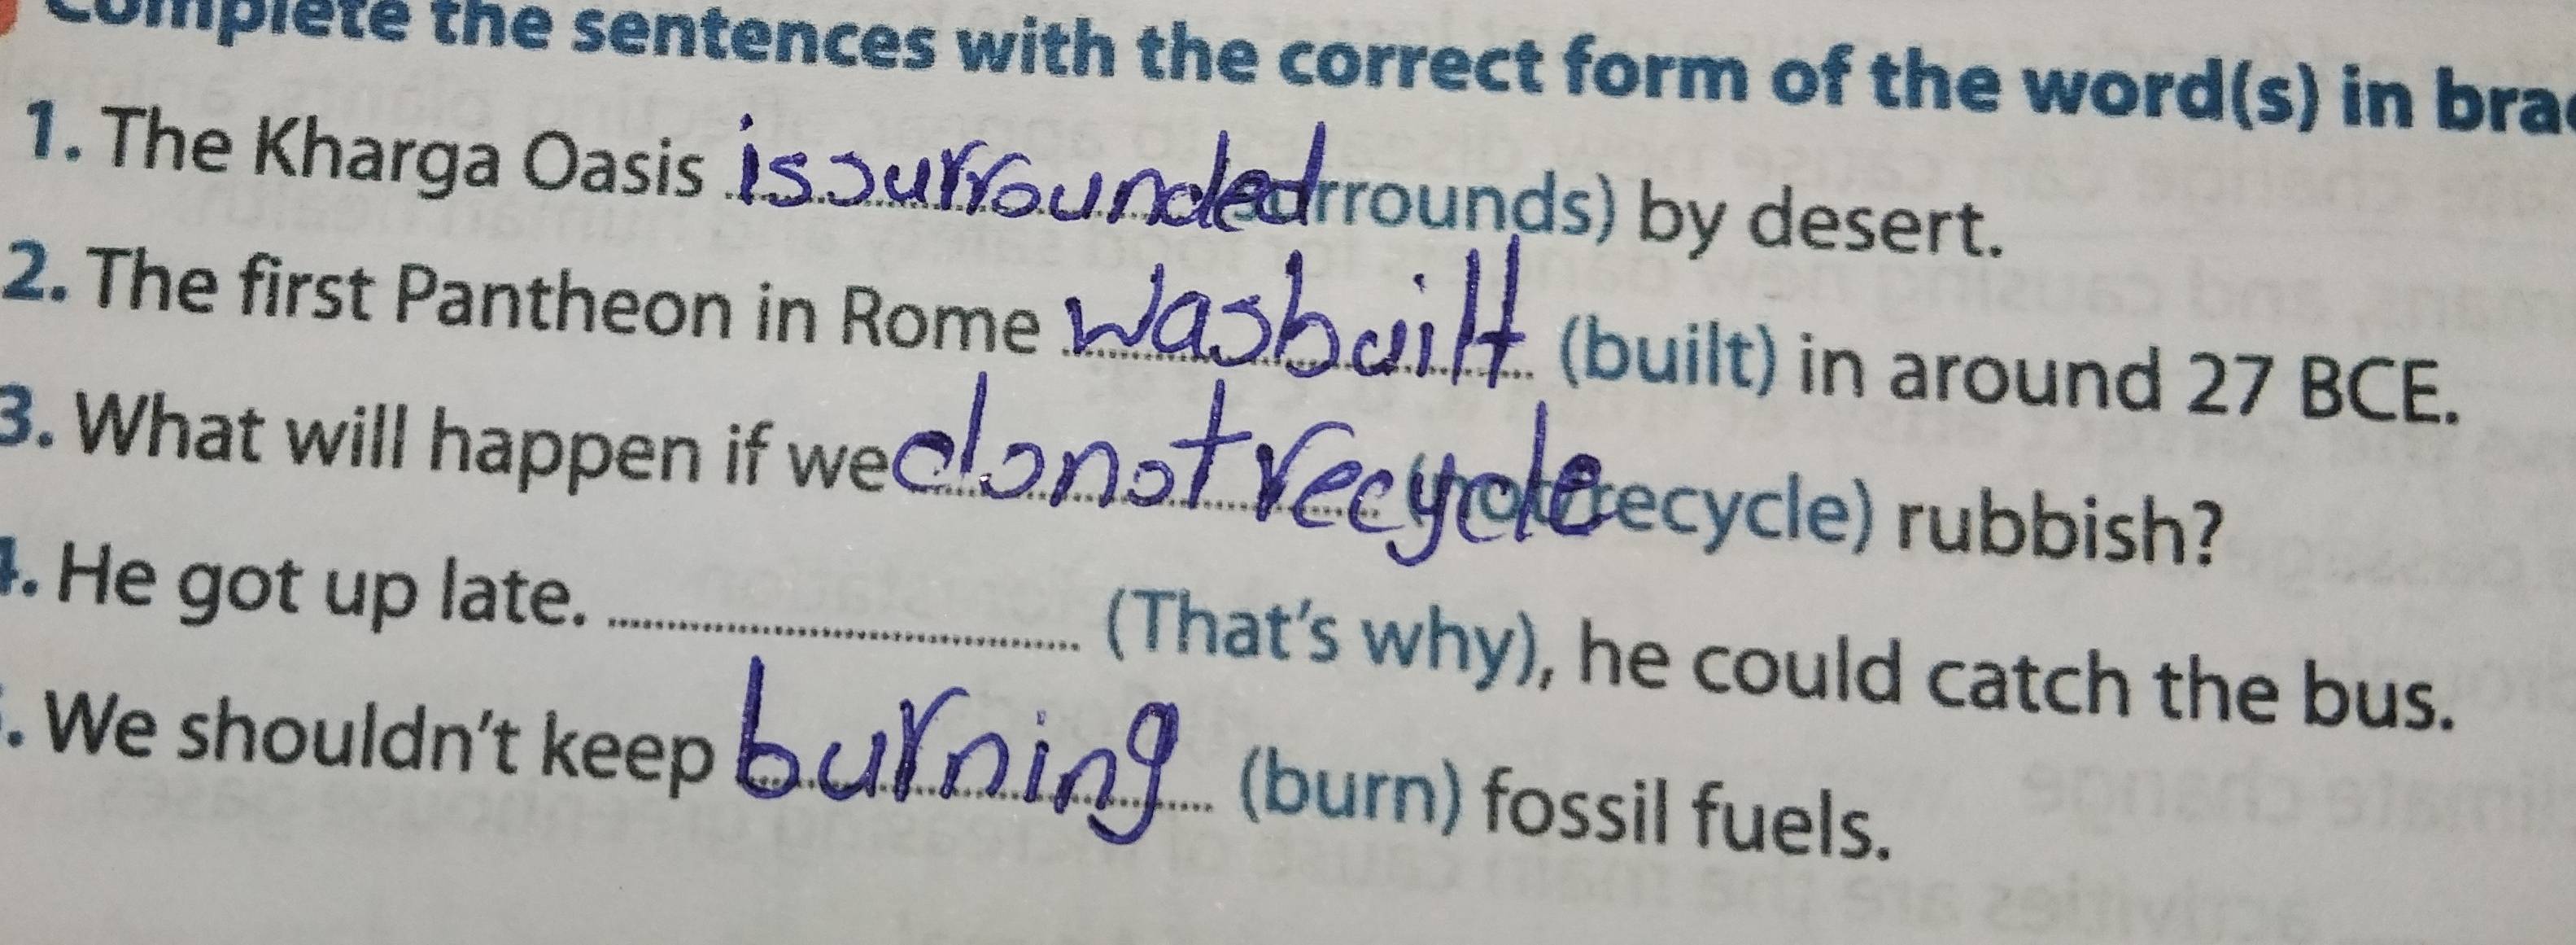 Complete the sentences with the correct form of the word(s) in
1. The Kharga Oasis is surrounded (surrounds) by desert.
2. The first Pantheon in Rome was built (built) in around 27 BCE.
3. What will happen if we do not recycle (not/recycle) rubbish?
4. He got up late. (That's why), he could catch the bus.
. We shouldn't keep burning (burn) fossil fuels.